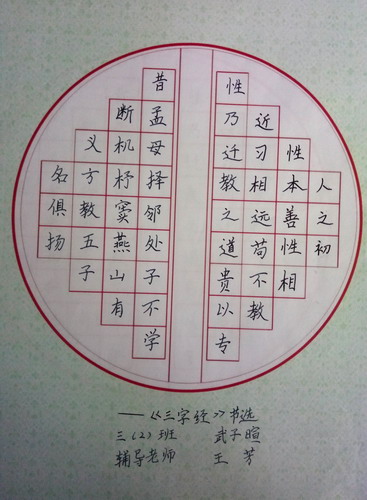 人之初
性本善性相
近习相远苟不教
性乃迁教之道贵以专
昔孟母择邻处子不学
断机杼窦燕山有
义方教五子
名俱扬
——《三字经》书选
三(2)班 武子暄
辅导老师 王芳